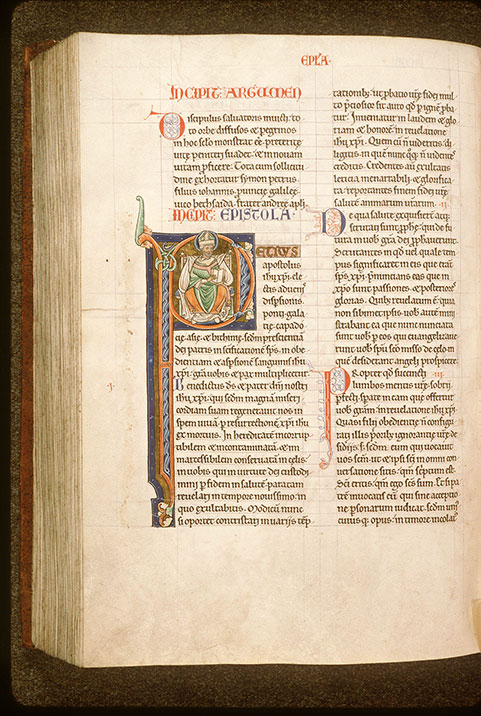 EPLA.
INCIPIT. ARGUMEN
Discipulus saluatoris
to orbe diffusos & pegrinos
in hoc seclo monstrat
uite penitere suadet & in nouam
uitam pficere. Tota cum sollicitu
dine exhortatur symon petrus
filius iohannis puincie galilee
uico bethsaida. frater andree apli.
INCIPIT. EPISTOLA.
PETRUS
apostolus
ihu xpi. ele
ctis aduenis
dispsionis.
ponti gala
tie capado
cie asie & bithinie. scdm prescientia
dei patris in scificatione sps. in obe
dientiam & aspsione sanguinis ihu
xpi. gra uobis & pax multiplicetur.
Benedictus ds & pater dni nostri
ihu xpi. qui scdm magna miseri
cordiam suam regenerauit nos in
spem uiua p resurrectione xpi ihu
ex mortuis. In hereditate incorrup
tibilem & incontaminata & in
marcessibilem conseruata in celis
in uobis qui in uirtute dei custodi
mini p fidem in salute parata
reuelari in tempore nouissimo. in
quo exultabitis. Modicu nunc
si oportet contristari in uariis temp
tationibz. ut pbatio ure fidei mul
to pciosior sit auro qd p igne pba
tur. Inueniatur in laudem & glo
riam & honore. in reuelatione
ihu xpi. Quem cu n uideritis. di
ligitis in que nunc qqz n uidentes
creditis. Credentes au exultatis
leticia inenarrabili & glorifica
ta. reportantes finem fidei ure
salute animarum urarum. ii.
De qua salute exquisiert atqz
scrutati sunt pphe. qui de fu
tura in uob gra dei pphauerunt.
Scrutantes in qd uel quale tem
pus significaret in eis que erat
sps xpi. pnuncians eas que in
xpo sunt passiones. & posteriores
glorias. Quibz reuelatum e quia
non sibimetipsis uob aute mini
strabant ea que nunc nuntiata
sunt uob p eos qui euangelizaue
runt uob spu sco misso de celo in
que desiderant angeli pspicere.
Propter qd succincti iii.
lumbos mentis ure sobrii
pfecti. spate in eam que offertur
uob gram in reuelatione ihu xpi.
Quasi filii obedientie n configu
rati illis prioribz ignorantie ure de
sideriis. s; scdm eum qui uocauit
uos scm. ut & ipsi sci in omni con
uersatione sitis. qm scriptum est.
Sci eritis. qm ego scs sum. Et si pa
tre inuocatis eu qui sine acceptio
ne psonarum iudicat scdm uni
cuiusqz opus. in timore incolat